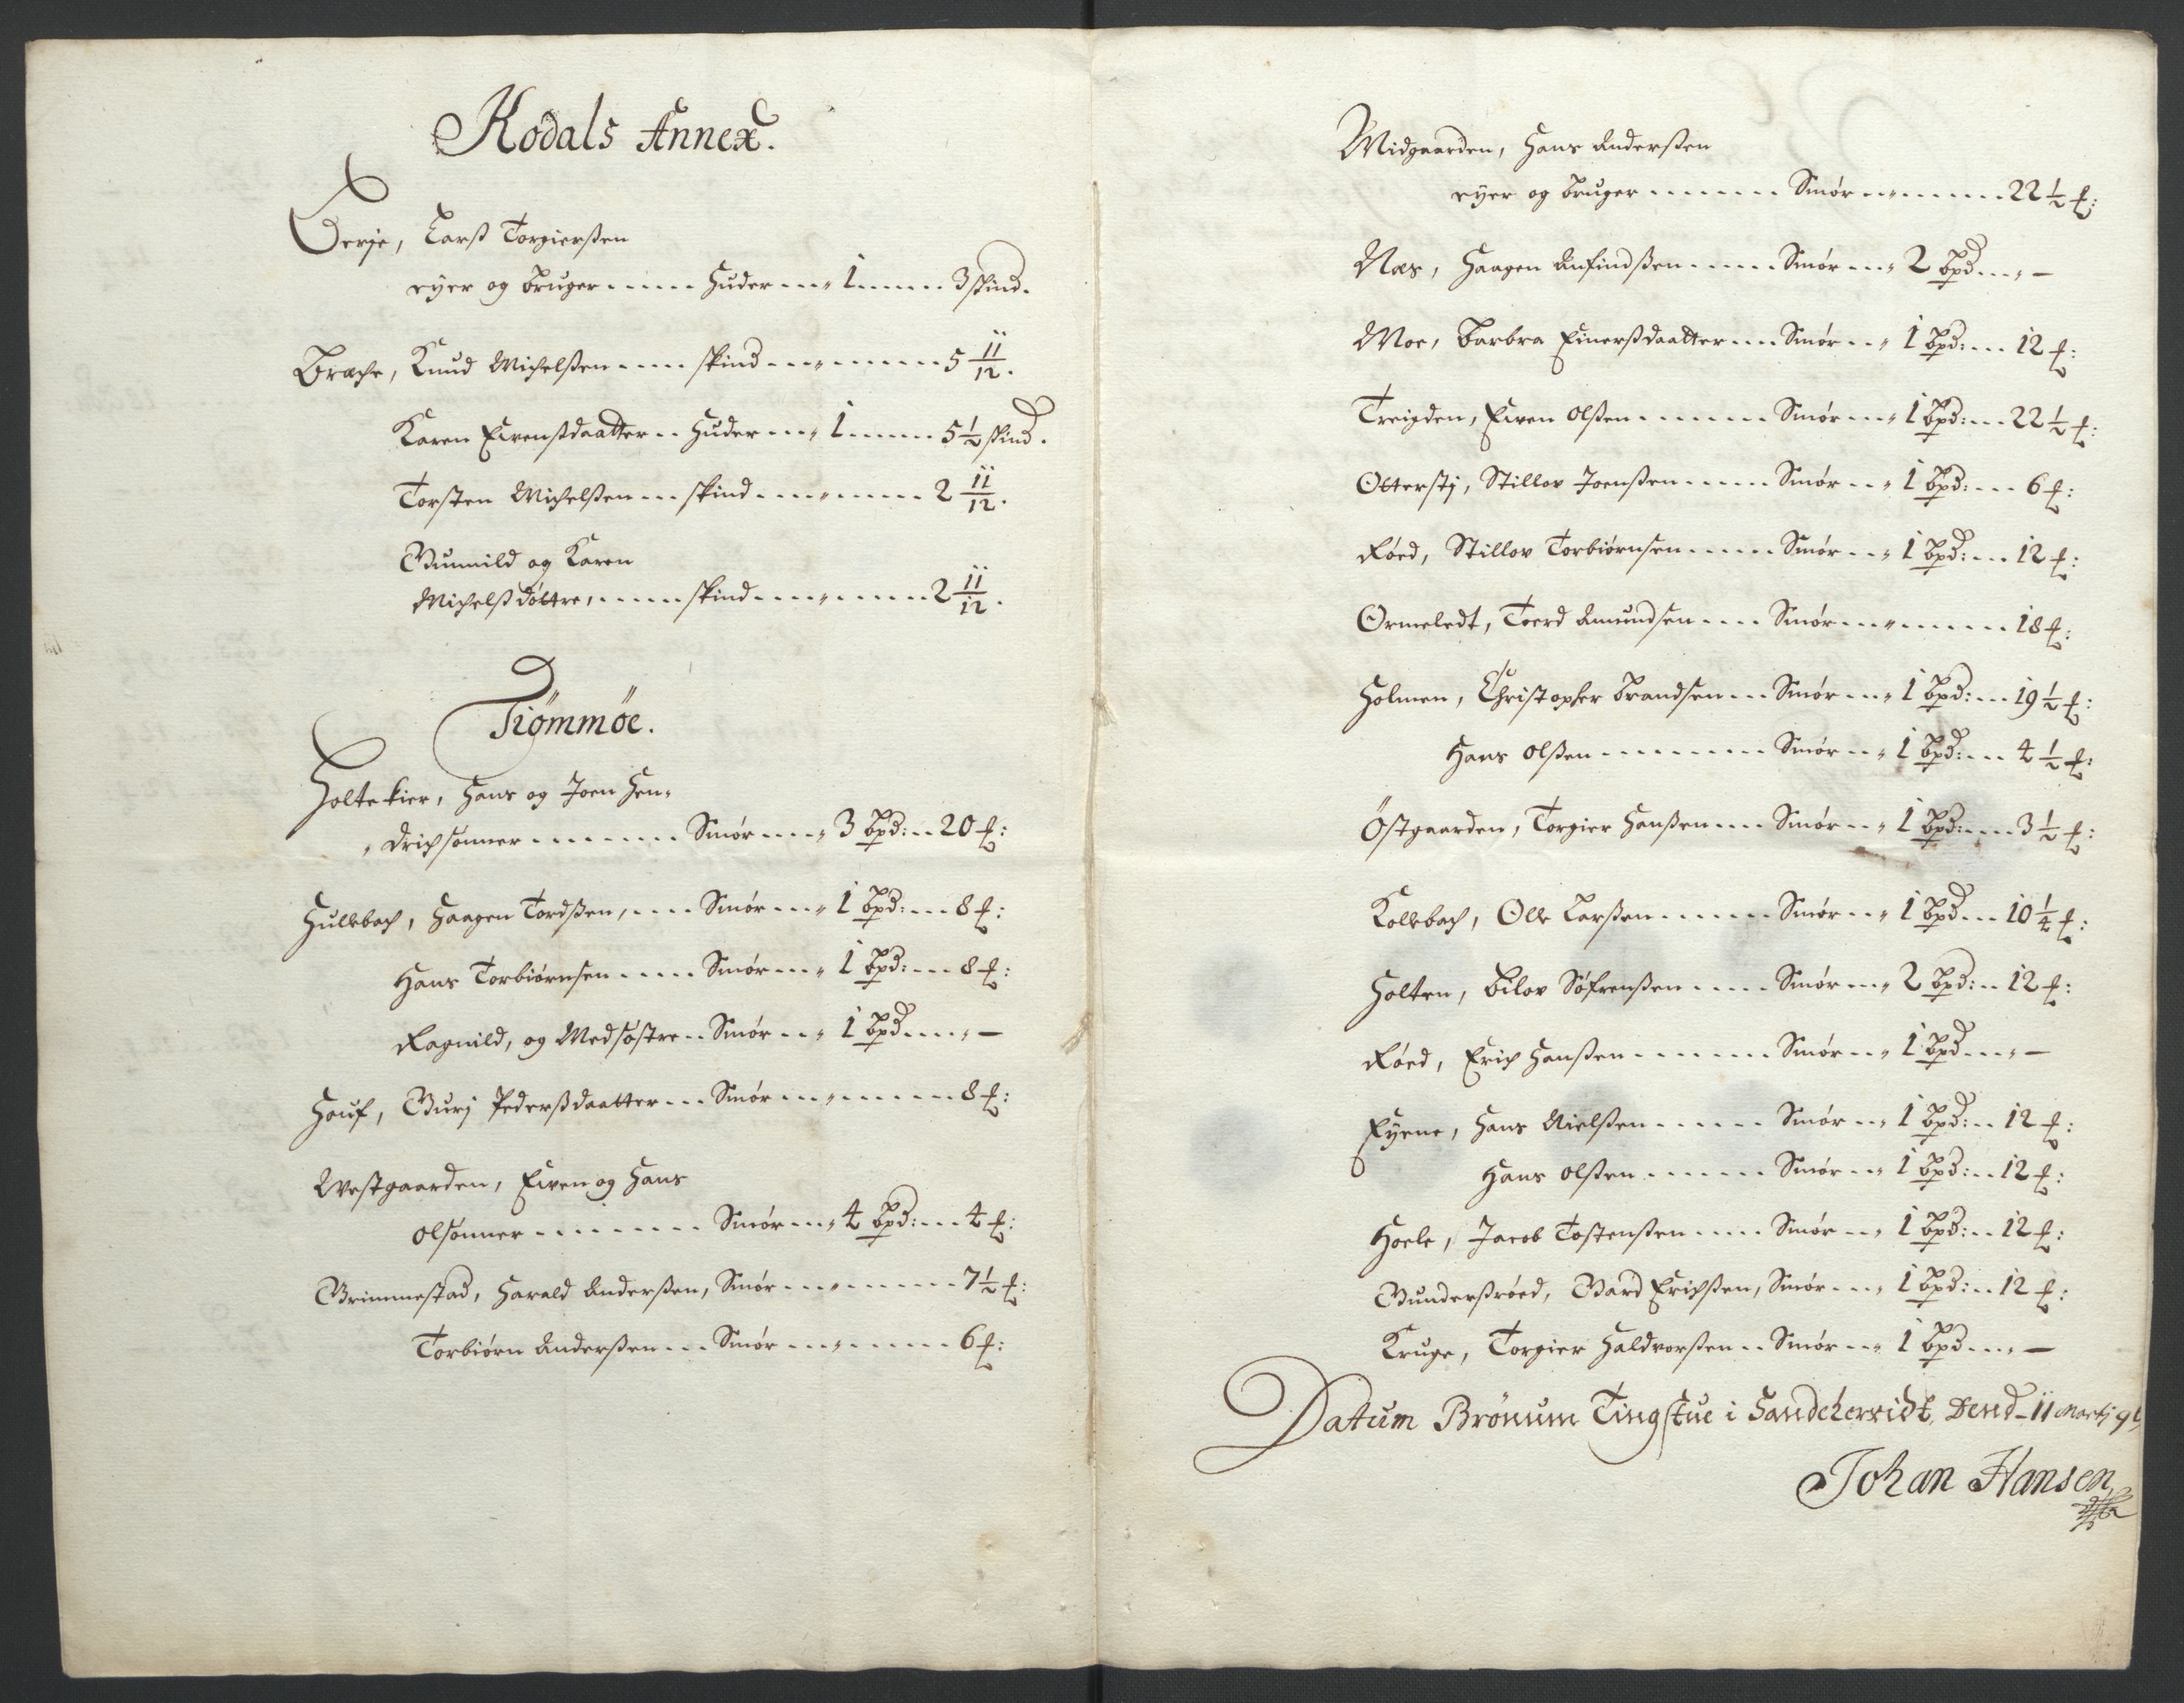 Kodals Annex.
Gerje, Larß Torgierßen
eyer og bruger ...... huder ... 1 ...... 3 skind.
Bræche, Knud Michelßen ..... skind ........ 5 11/12.
Karen Evenßdaatter .. huder ... 1 ...... 5 1/2 skind.
Torsten Michelßen ... skind ......... 2 11/12.
Gunnild og Karen
Michelßdøttre, ..... skind ......... 2 11/12.
Tiømmöe.
Holtekier, Hans og Joen Hen-
drichsønner ........ Smør .... 3 bpd: .. 20 ℔:
Hullebach, Haagen Tordßen, .... Smør ... 1 bpd: ... 8 ℔:
Hans Torbiørnsen ..... Smør ... 1 bpd: ... 8 ℔:
Ragnild, og Medsøstre .. Smør .. 1 bpd .... —
Houf, Gurj Pederßdaatter ... Smør ......... 8 ℔:
Westgaarden, Even og Hans
olsønner ......... Smør ... 4 bpd: ... 4 ℔:
Grimmestad, Harald Anderßen, Smør ......... 7 1/2 ℔:
Torbiørn Anderßen ... Smør ......... 6 ℔:
Midgaarden, Hans Anderßen
eyer og bruger ....... Smør ........ 22 1/2 ℔:
Næs, Haagen Anfindßen ..... Smør ... 2 bpd ... —
Moe, Barbra Einerßdaatter .... Smør .. 1 bpd: ... 12 ℔:
Treigden, Even Olßen ....... Smør ... 1 bpd: ... 22 1/2 ℔:
Otterstj, Stillov Joenßen ..... Smør .. 1 bpd: ... 6 ℔:
Røed, Stillov Torbiørnsen ..... Smør .. 1 bpd: ... 12 ℔:
Ormeledt, Toerd Amundsen .... Smør ........ 18 ℔:
Holmen, Christopher Brandsen ... Smør ... 1 bpd: ... 19 1/2 ℔:
Hans Olßen ......... Smør .. 1 bpd: ... 4 1/2 ℔:
Östgaarden, Torgier Hanßen .... Smør .. 1 bpd: .... 3 1/2 ℔:
Kollebach, Olle Larßen ....... Smør .. 1 bpd ... 10 1/4 ℔:
Holten, Bilov Søfrenßen ..... Smør ... 2 bpd: .. 12 ℔:
Røed, Erich Hanßen ....... Smør .. 1 bpd ... —
Eyene, Hans Nielßen ...... Smør .. 1 bpd: .. 12 ℔:
Hans Olßen ....... Smør .. 1 bpd: .. 12 ℔:
Hoele, Jacob Tostenßen ..... Smør .. 1 bpd: .. 12 ℔:
Gunderßrøed, Bård Erichßen, Smør ... 1 bpd: .. 12 ℔:
Kruge, Torgier Haldvorßen .. Smør .. 1 bpd ... —
Dattum Brønum Tingstue i Sandeherridt, Dend 11 Martj 9
Johan Hansen